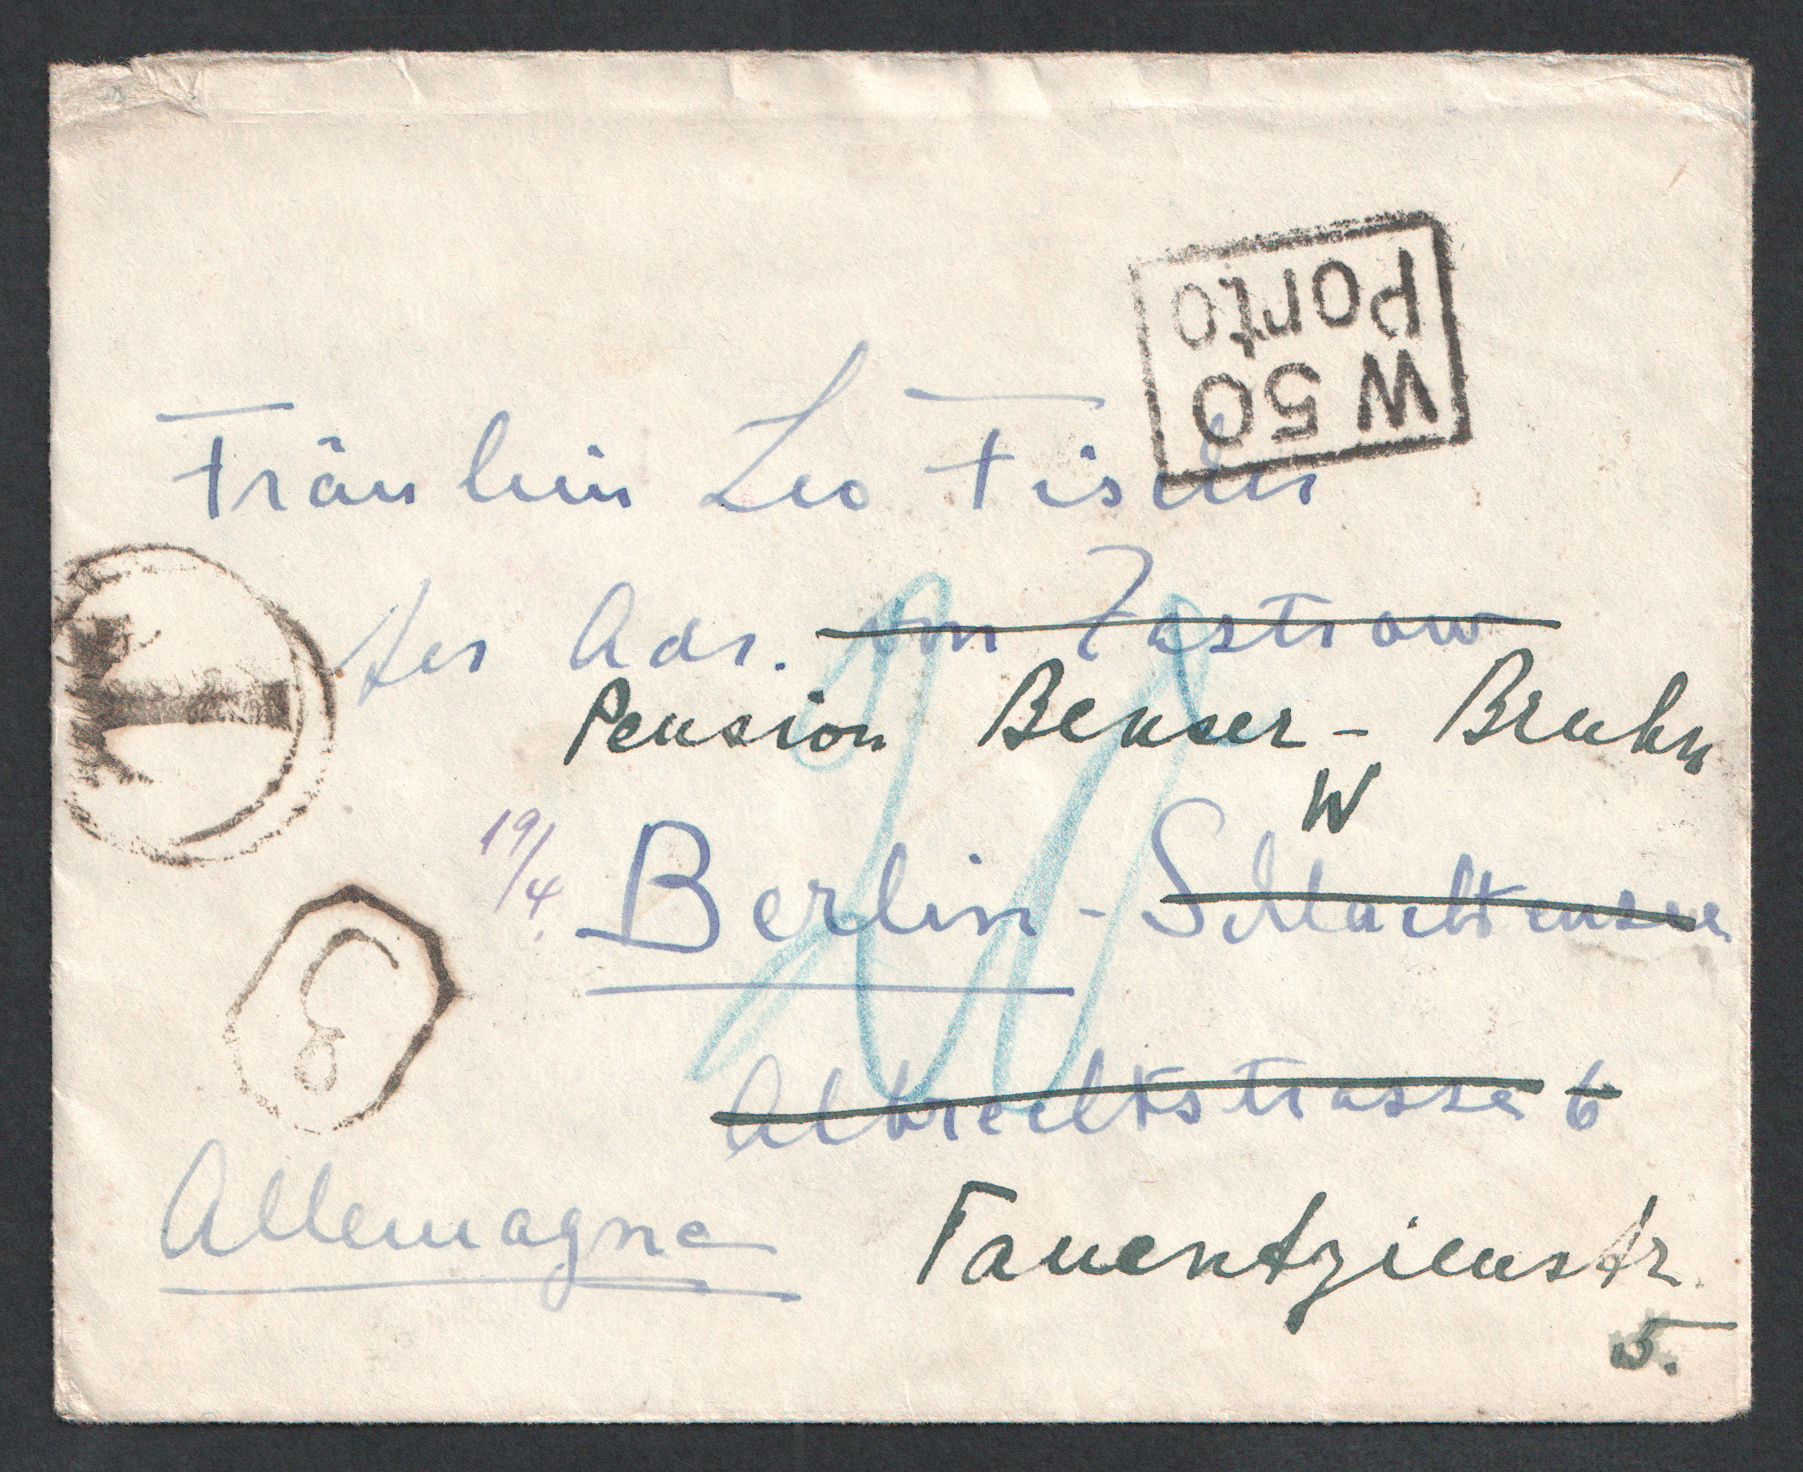 W 50
Porto
Fräulein Leo Fischer
per Adr. von Zastrow
Pension Benser-Bruhn
W
19/4.
Berlin-Schlachtensee
Albrechtstrasse 6
Allemagne
Tauentzienstr.
5.
T
20